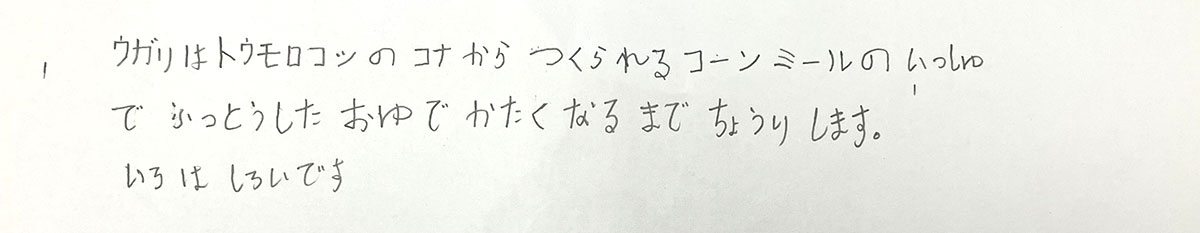 ウガリはトウモロコシの コナから つくられる コーンミールの いっしゅ
で ふっとうした おゆで かたく なる まで ちょうり します。
いろは しろいです